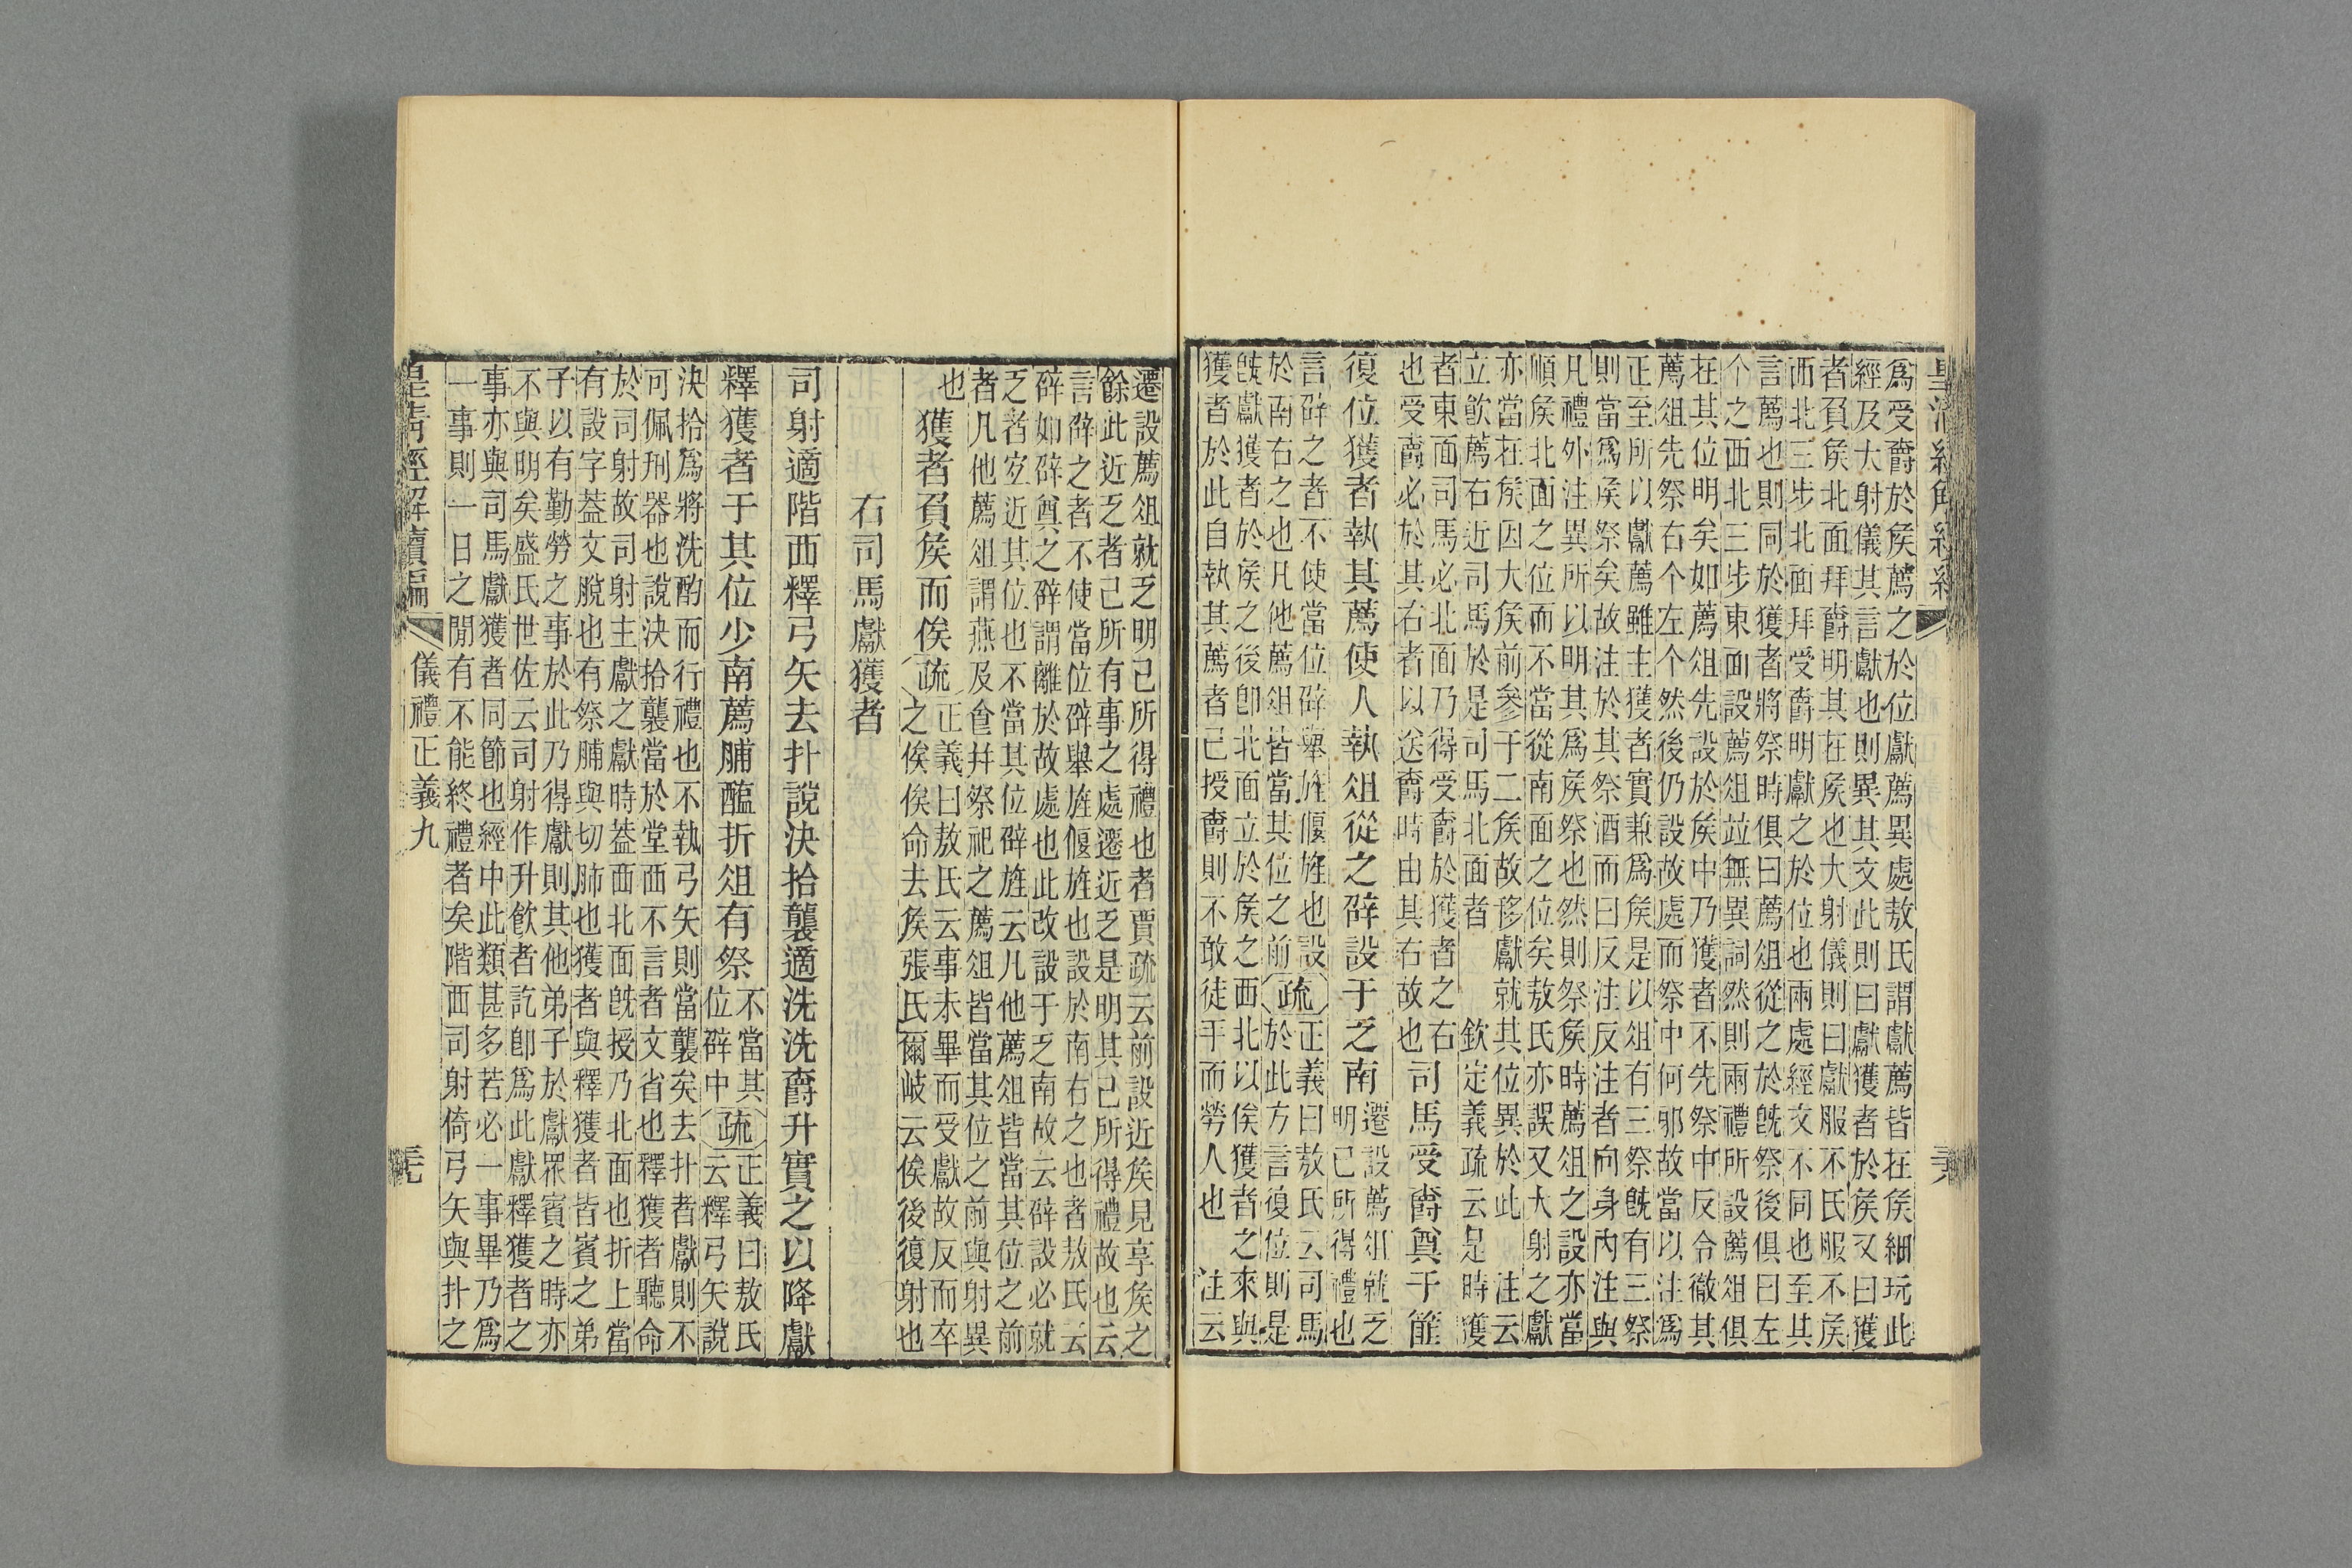 皇清經解續編
爲受爵於矦薦之於位獻薦異處敖氏謂獻薦皆在矦細玩此
經及大射儀其言獻也則異其文此則曰獻獲者於矦又曰獲
者負矦北面拜爵明其在矦也大射儀則曰獻服不氏服不矦
西北三步北面拜受爵明獻之於位也兩處經文不同也至其
言薦也則同於獲者將祭時俱曰薦俎從之於旣祭後俱曰左
个之西北三步東面設薦俎竝無異詞然則兩禮所設薦俎俱
在其位明矣如薦俎先設於矦中乃獲者不先祭中反令徹其
薦俎先祭右个左个然後仍設故處而祭中何邪故當以注爲
正至所以獻薦雖主獲者實兼爲矦是以俎有三祭旣有三祭
則當爲矦祭矣故注於其祭酒而曰反注反注者向身內注與
凡禮外注異所以明其爲矦祭也然則祭矦時薦俎之設亦當
順矦北面之位而不當從南面之位矣敖氏亦誤又大射之獻
亦當在矦因大矦前參于二矦故移獻就其位異於此　注云
立飮薦右近司馬於是司馬北面者　欽定義疏云是時獲
者東面司馬必北面乃得受爵於獲者之右
也受爵必於其右者以送爵時由其右故也
司馬受爵奠于篚
復位獲者執其薦使人執俎從之辟設于乏南
遷設薦俎就乏
明已所得禮也
言辟之者不使當位辟舉旌偃旌也設
於南右之也凡他薦俎皆當其位之前
疏
正義曰敖氏云司馬
於此方言復位則是
旣獻獲者於矦之後卽北面立於矦之西北以俟獲者之來與
獲者於此自執其薦者己授爵則不敢徒手而勞人也　注云
遷設薦俎就乏明己所得禮也者賈疏云前設近矦見享矦之
餘此近乏者己所有事之處遷近乏是明其己所得禮故也云
言辟之者不使當位辟舉旌偃旌也設於南右之也者敖氏云
辟如辟奠之辟謂離於故處也此改設于乏南故云辟設必就
乏者宐近其位也不當其位辟旌云凡他薦俎皆當其位之前
者凡他薦俎謂燕及食幷祭祀之薦俎皆當其位之前與射異
也
獲者負矦而俟
疏
正義曰敖氏云事未畢而受獻故反而卒
之俟俟命去矦張氏爾岐云俟後復射也
右司馬獻獲者
司射適階西釋弓矢去扑說決拾襲適洗洗爵升實之以降獻
釋獲者于其位少南薦脯醢折俎有祭
不當其
位辟中
疏
正義曰敖氏
云釋弓矢說
決拾爲將洗酌而行禮也不執弓矢則當襲矣去扑者獻則不
可佩刑器也說決拾襲當於堂西不言者文省也釋獲者聽命
於司射故司射主獻之獻時葢西北面旣授乃北面也折上當
有設字葢文脫也有祭脯與切肺也獲者與釋獲者皆賓之弟
子以有勤勞之事於此乃得獻則其他弟子於獻眾賓之時亦
不與明矣盛氏世佐云司射作升飮者訖卽爲此獻釋獲者之
事亦與司馬獻獲者同節也經中此類甚多若必一事畢乃爲
一事則一日之閒有不能終禮者矣階西司射倚弓矢與扑之
皇清經解續編
儀禮正義九